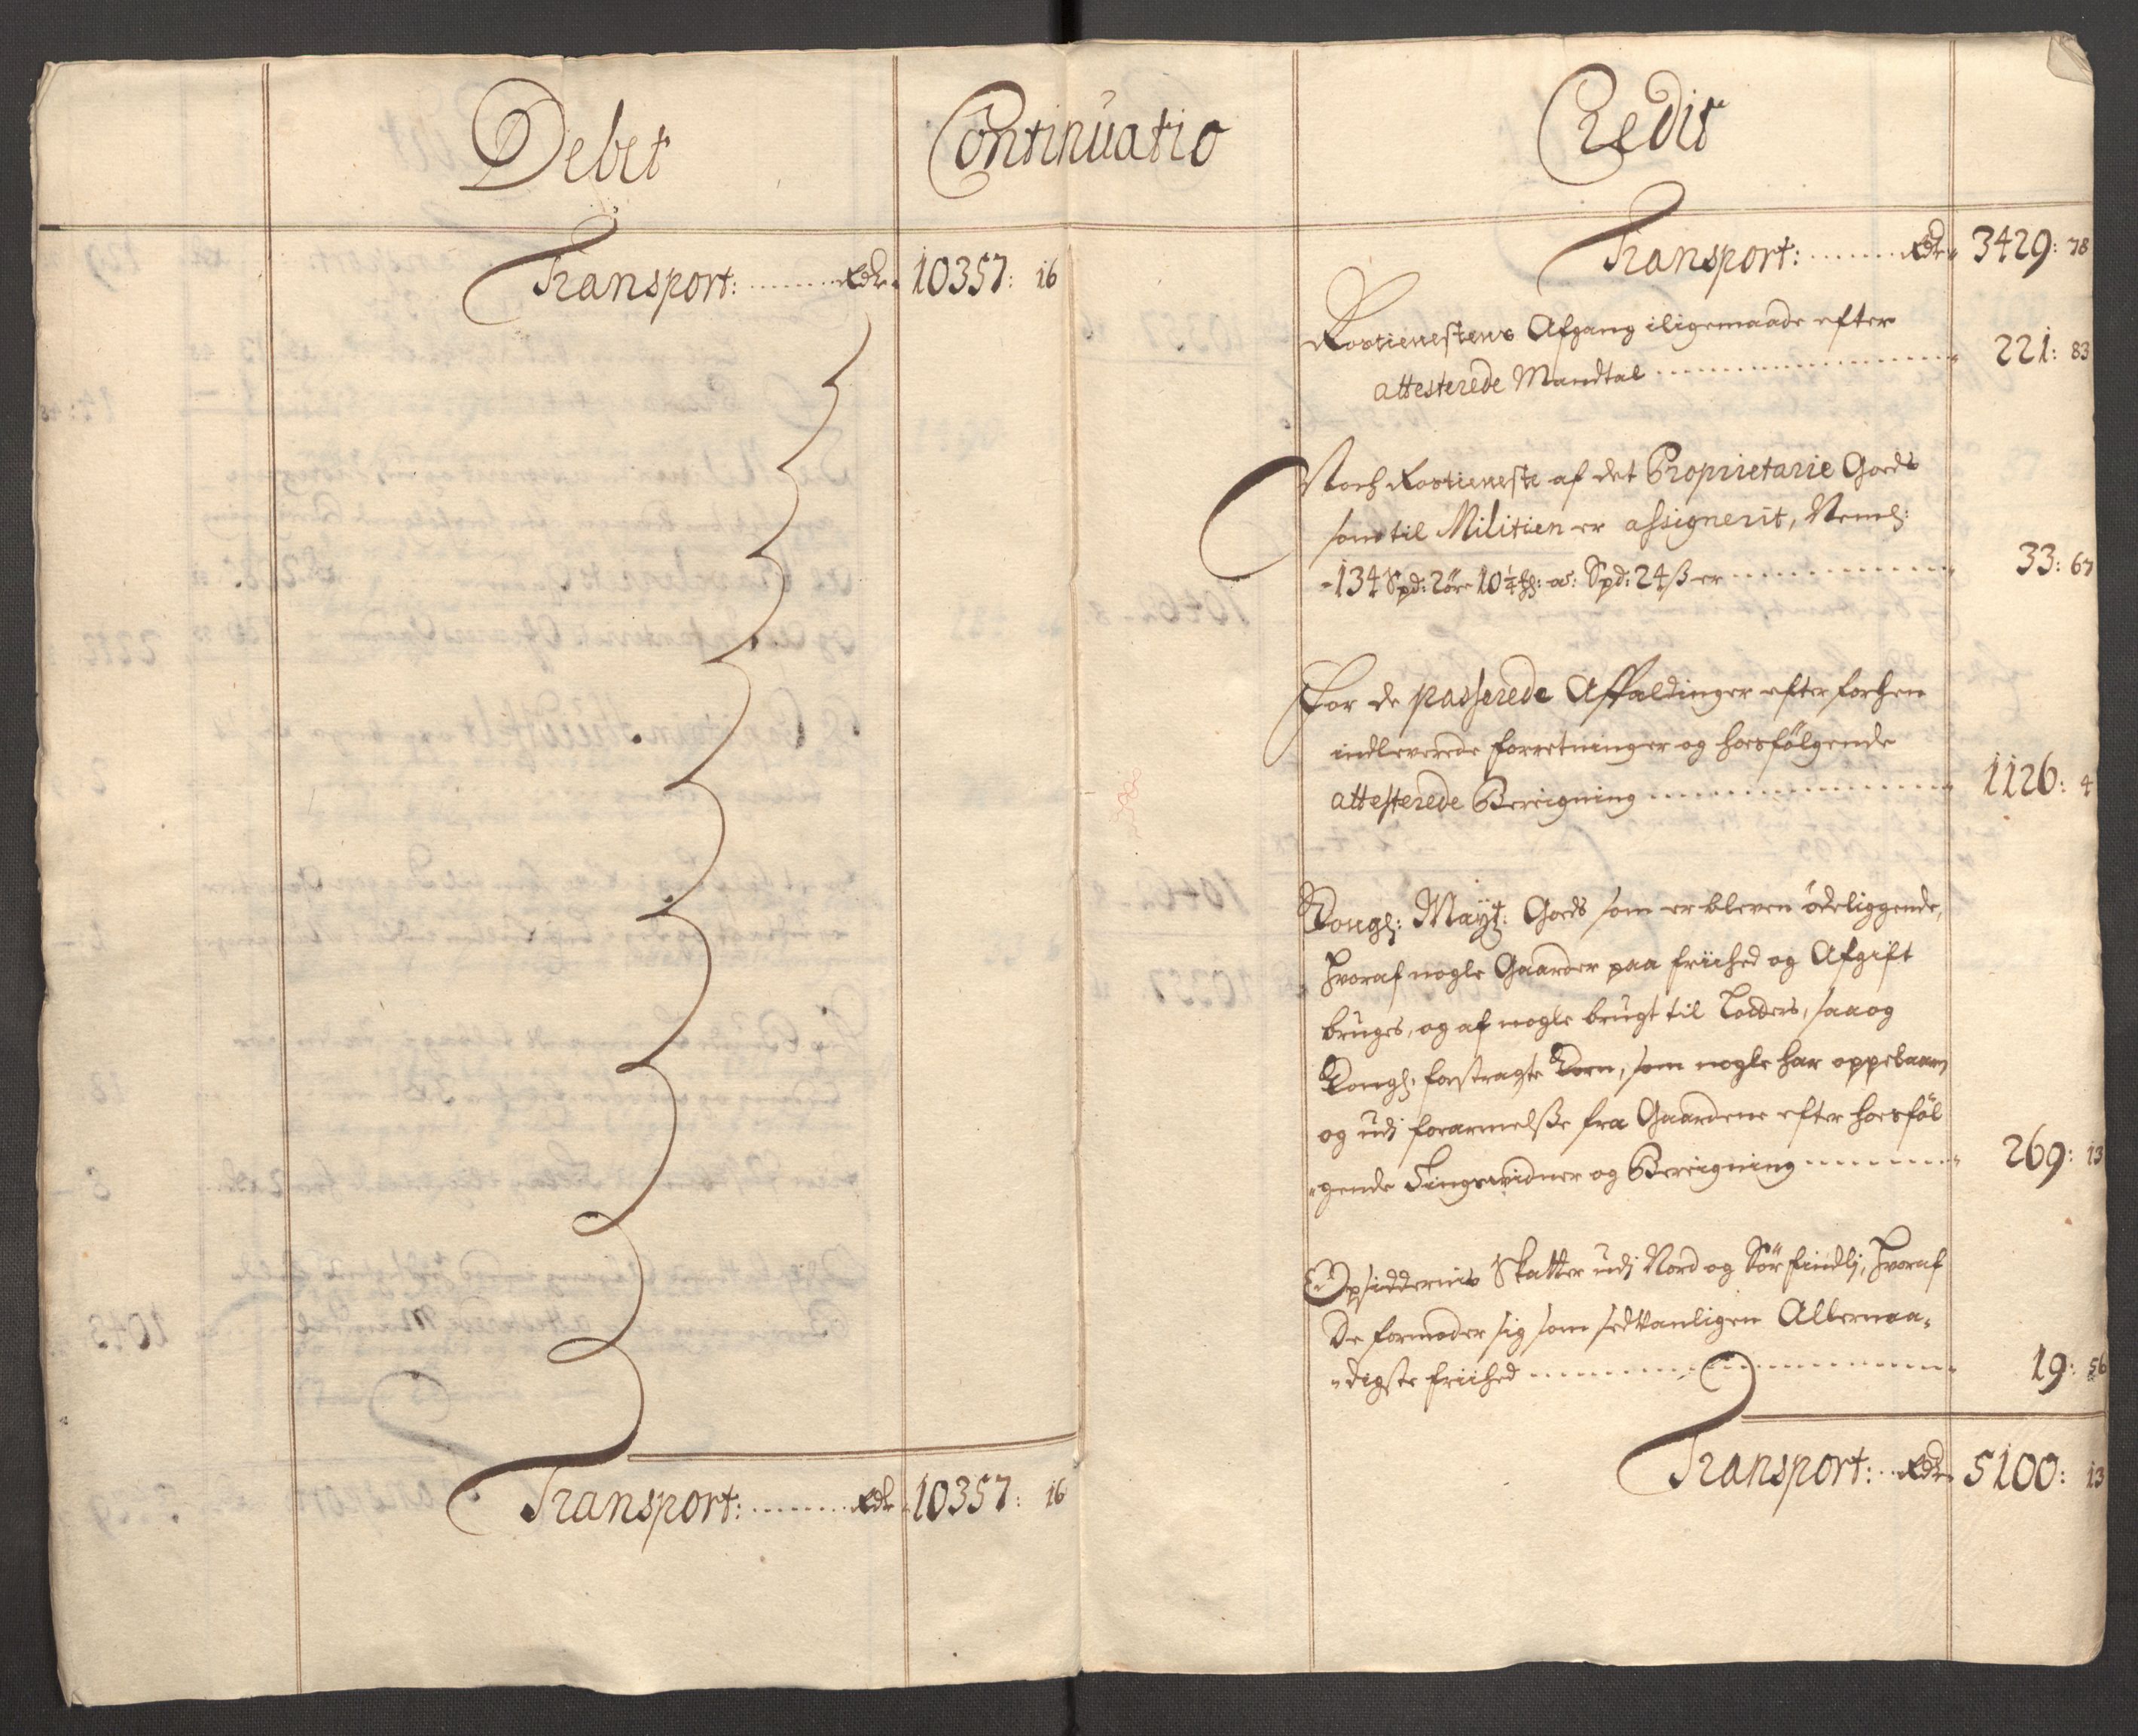 Debet
Continuatio
Transport: ........ Rdr. 10357: 16
Transport: ........ Rdr. 10357: 16
Credit
Transport: ....... Rdr. 3429: 78
Rostienestens Afgang iligemaade efter
attesterede Mandtal ........ 221: 83
Noch Rostieneste af det Proprietarie Goeds
som til Militien er assignerit, Neml:
-134 Spd: 2 ör 10 1/4 : a: Spd: 24 ß er ........ 33: 67
For de passerede Affældinger efter forhen
indleverede forretninger og hosfölgende
attesterede Bereigning ........ 1126: 4
Kongl: Mayt: Goeds som er bleven ödeliggende,
hvoraf nogle Gaarder paa friihed og Afgift
bruges, og af nogle brugt til, saa og
Kongl: forstragte Korn, som nogle har oppebaaren
og udj forarmelße fra Gaardene efter hosföl
gende Tingsvidner og Bereigning ........ 269: 13
Opsiddernis Skatter udj Nord og Sör findlj, hvoraf
De formoder sig som sedvanligen Allernaa-
digste friihed ........ 19: 56
Transport: .. Rdr. 5100: 13